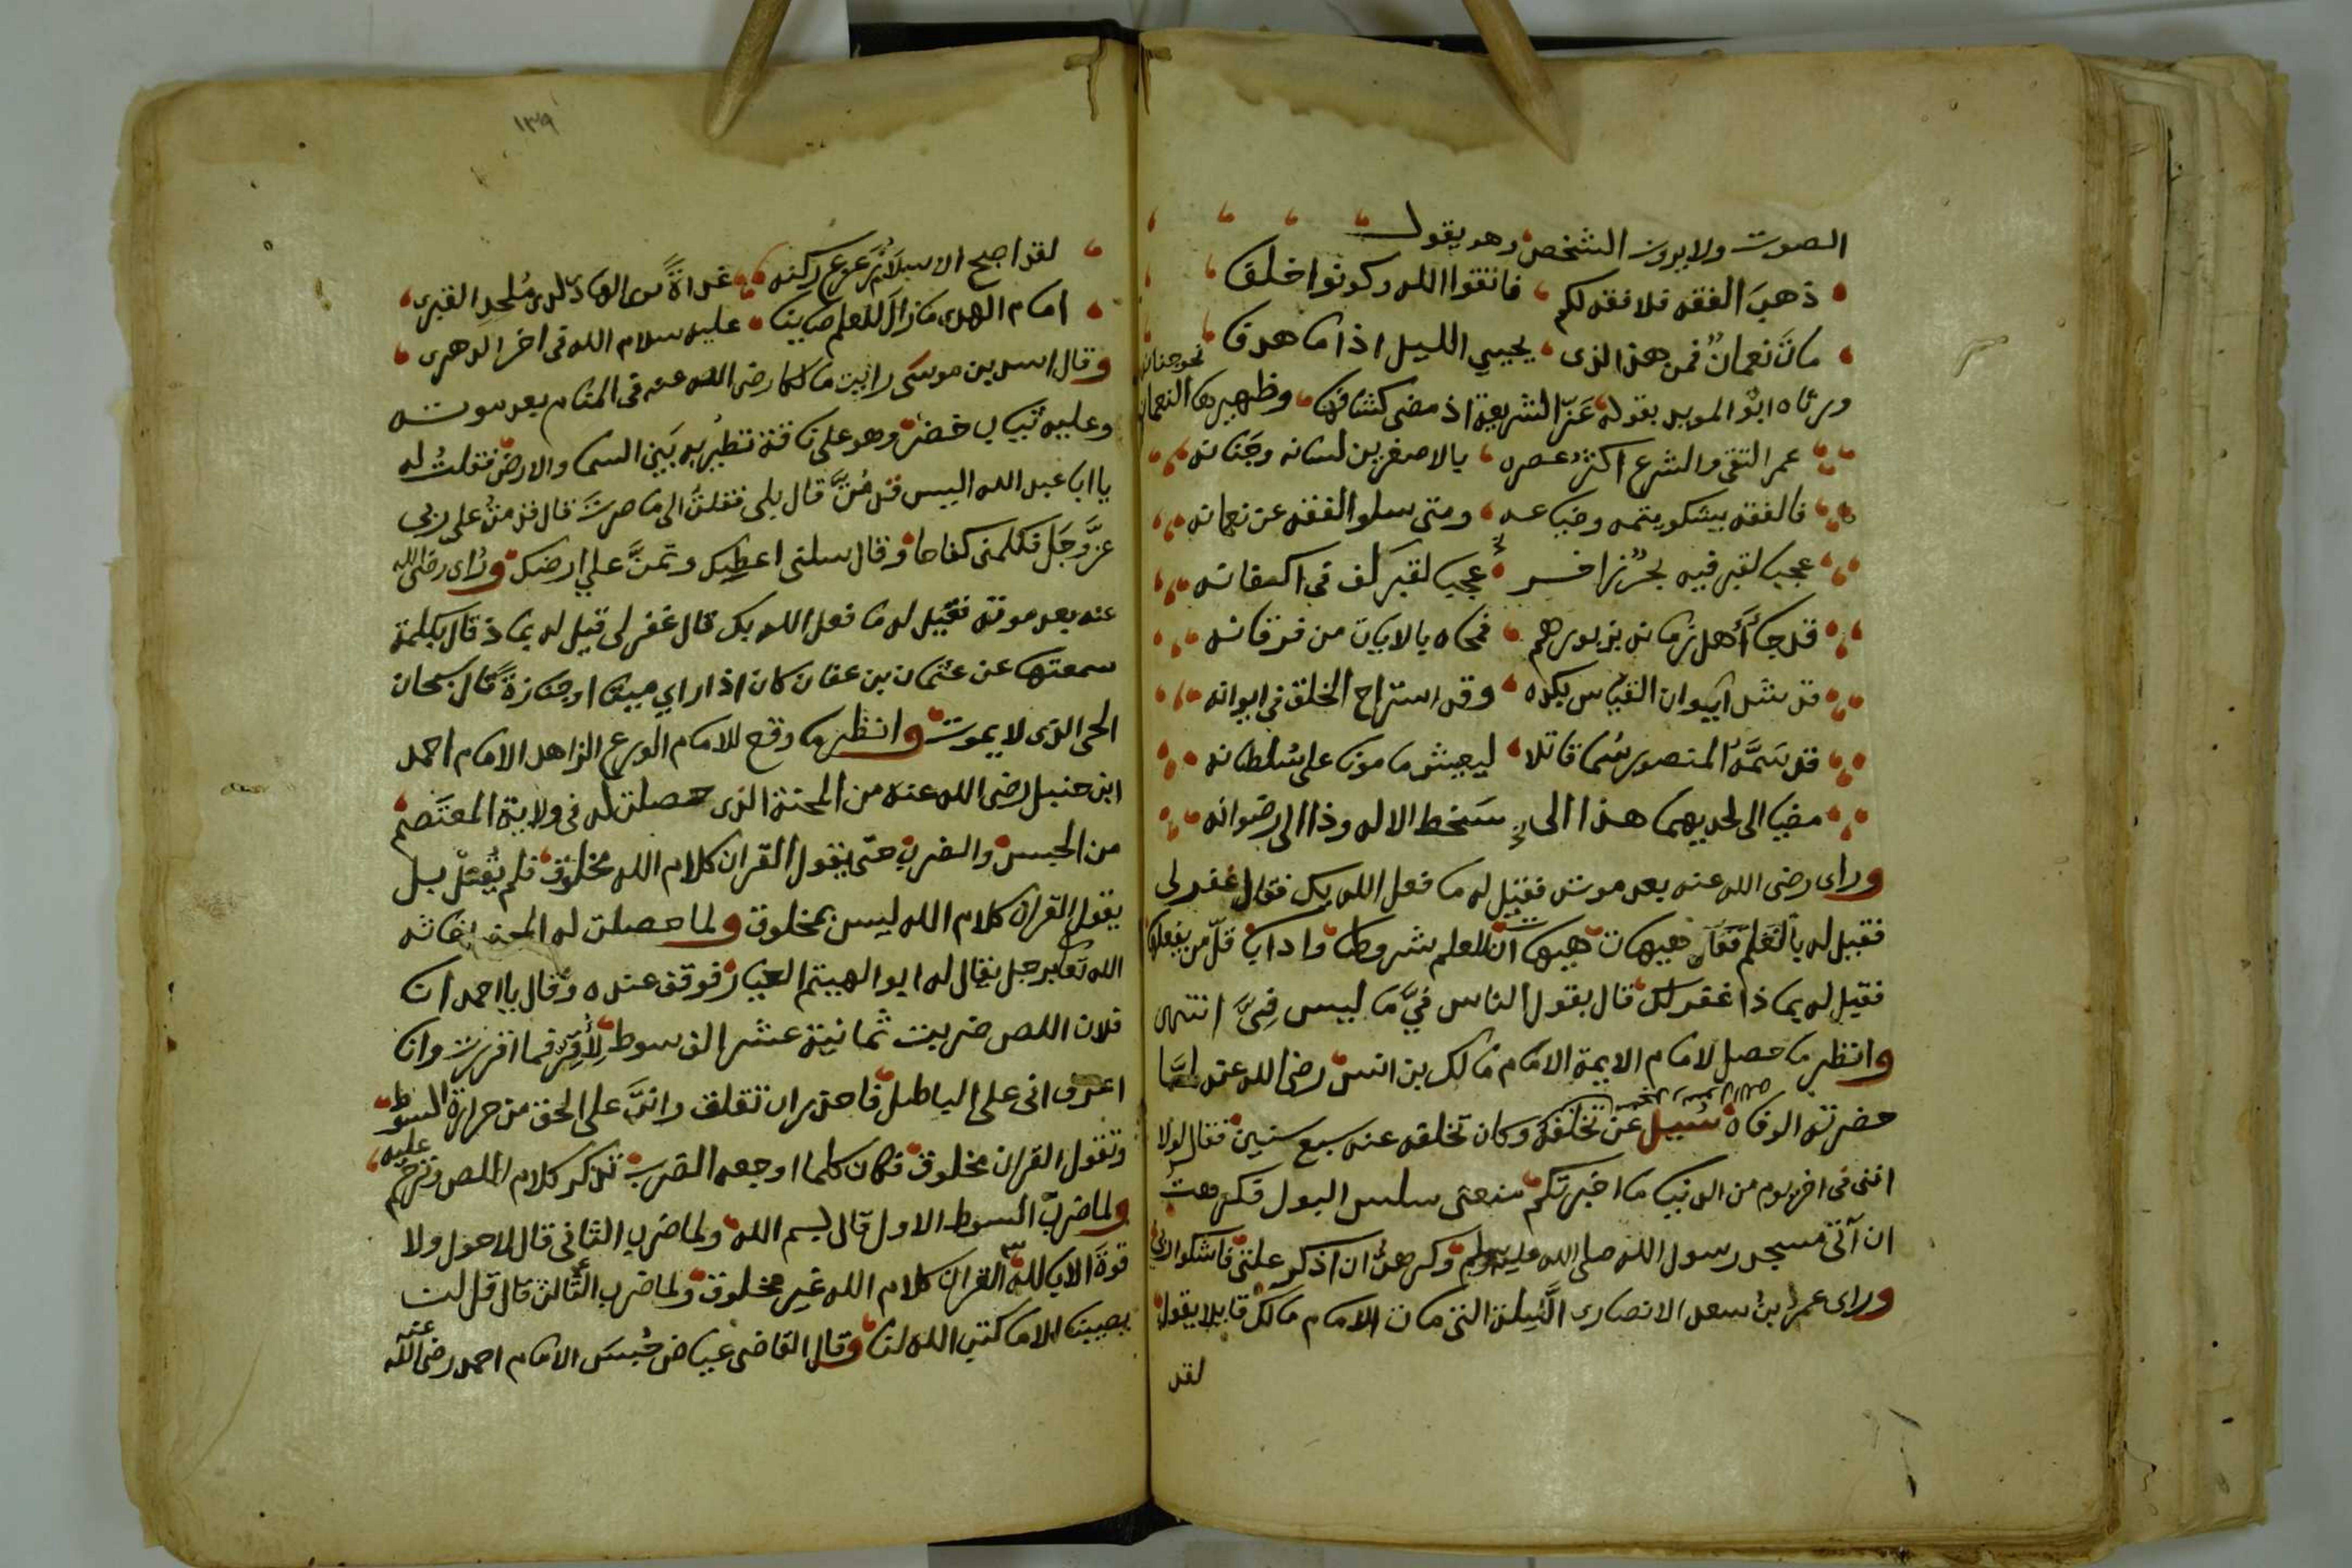 الصوت ولا يرون الشخص وهو يقول
ذهب الفقه فلا فقه لكم فاتقوا الله وكونوا خلفا
مات نعمان فمن هذا الذى يحيي الليل اذا ما هدفا
ورثاه ابو المويد بقوله عز الشريعة اذ مضى كشافها وظهيرها النعمان
نحو جنانه
عمر التقى والشرع اكثر عصره بالاصغرين لسانه وجنانه
فالفقه يشكو يتمه وضياعه ومتى سلو الفقه عن نعمانه
عجبا لقبر فيه بحر زاخر عجبا لقبر لف فى اكفانه
قد جا أهل زمانه بزبورهم فمحاه بالايات من فرقانه
قد شد ايوان القياس بكده وقد استراح الخلق فى ايوانه
قد سمه المنصور سما قاتلا ليعيش مامونا على سلطانه
مضيا الى لحديهما هذا الى سخط الاله وذا الى رضوانه
وراى رضى الله عنه بعد موته فقيل له ما فعل الله بك فقال غفر لى
فقيل له بالعلم فقال هيهات هيهات ان للعلم شروطا وادابا قل من يفعلها
فقيل له بماذا غفر لك قال بقول الناس في ما ليس في انتهى
وانظر ما حصل لامام الايمة الامام مالك بن انس رضى الله عنه لما
حضرته الوفاه سُيل عن تخلفه وكان تخلفه عنه سبع سنين فقال لولا
اننى فى اخر يوم من الدنيا ما اخبرتكم منعنى سلس البول فكرهت
ان آتى مسجد رسول الله صلى الله عليه وسلم وكرهت ان اذكر علتى فاشكوا ربى
وراى عمر بن سعد الانصارى الليلة التى مات الامام مالك قايلا يقول
لقد
١٣٩
لقد اصبح الاسلام زعزع ركنه غداة ثوى الهادى لدى ملحد القبرى
امام الهدى ما زال للعلم صاينا عليه سلام الله فى اخر الدهرى
وقال اسد بن موسى رايت مالكا رضى الله عنه فى المنام بعد موته
وعليه ثياب خضر وهو على ناقة تطير به بين السما والارض فقلت له
يا ابا عبد الله اليس قد مُتَّ قال بلى فقلت الى ما صرت قال قدمت على ربى
عزَّ وجَل فكلمنى كفاحا وقال سلنى اعطيك وتمنَّ علي ارضك وراى رضى الله
عنه بعد موته فقيل له ما فعل الله بك قال غفر لى قيل له بماذا قال بكلمة
سمعتها عن عثمان بن عفان كان اذا راي ميتا او جنازة قال سبحان
الحى الذى لا يموت وانظر ما وقع للامام الورع الزاهد الامام احمد
ابن حنبل رضى الله عنه من المحنة الذى حصلت له فى ولاية المعتصم
من الحبس والضرب حتى يقول القران كلام الله مخلوق فلم يقل بل
يقول القران كلام الله ليس بمخلوق ولما حصلت له المحنه اغاثه
الله تعا برجل يقال له ابو الهيتم العيار فوقف عنده وقال يا احمد ان
فلان اللص ضربت ثمانية عشر الف سوط لأقر فما اقررت وانا
اعرف انى على الباطل فاحذر ان تقلق وانت على الحق من حرارة السوط
وتقول القران مخلوق فكان كلما اوجعه الضرب تذكر كلام اللص وترحم عليه
ولما ضرب السوط الاول قال بسم الله ولما ضرب الثانى قال لا حول ولا
قوة الا بالله القران كلام الله غير مخلوق ولما ضرب الثالث قال قل لن
يصيبنا الا ما كتب الله لنا وقال القاضى عياض حُبسَ الامام احمد رضى الله عنه